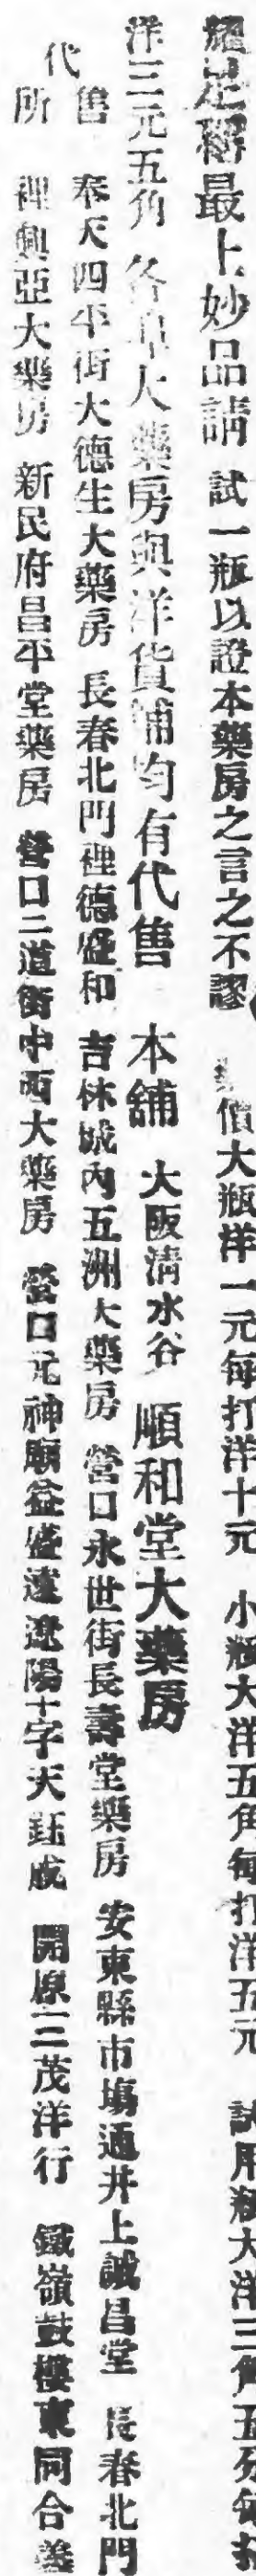 足稱最上妙品請試一瓶以證本藥房之言之不謬 價大瓶洋一元每打洋十元 小瓶大洋五角每打洋五元 試用瓶大洋三角五分每打
洋三元五角 各埠大藥房與洋貨舖均有代售 本舖 大阪清水谷 順和堂大藥房
代售所
奉天四平街大德生大藥房 長春北門裡德盛和 吉林城內五洲大藥房 營口永世街長壽堂藥房 安東縣市場通井上誠昌堂 長春北門
裡興亞大藥房 新民府昌平堂藥房 營口二道街中西大藥房 營口元神廟益盛遠 遼陽十字天鈺成 開原三茂洋行 鐵嶺鼓樓東同合義